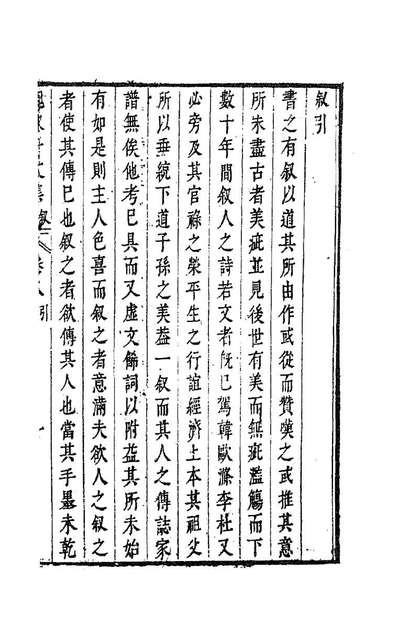 叙引
書之有叙以道其所由作或從而贊嘆之或推其意
所未盡古者美疵並見後世有美而無疵濫觴而下
數十年間叙人之詩若文者旣已駕韓歐滌李杜又
必旁及其官祿之榮平生之行誼經濟上本其祖父
所以垂統下道子孫之美葢一叙而其人之傳誌家
譜無俟他考已具而又虛文餙詞以附益其所未始
有如是則主人色喜而叙之者意滿夫欲人之叙之
者使其傳已也叙之者欲傳其人也當其手墨未乾